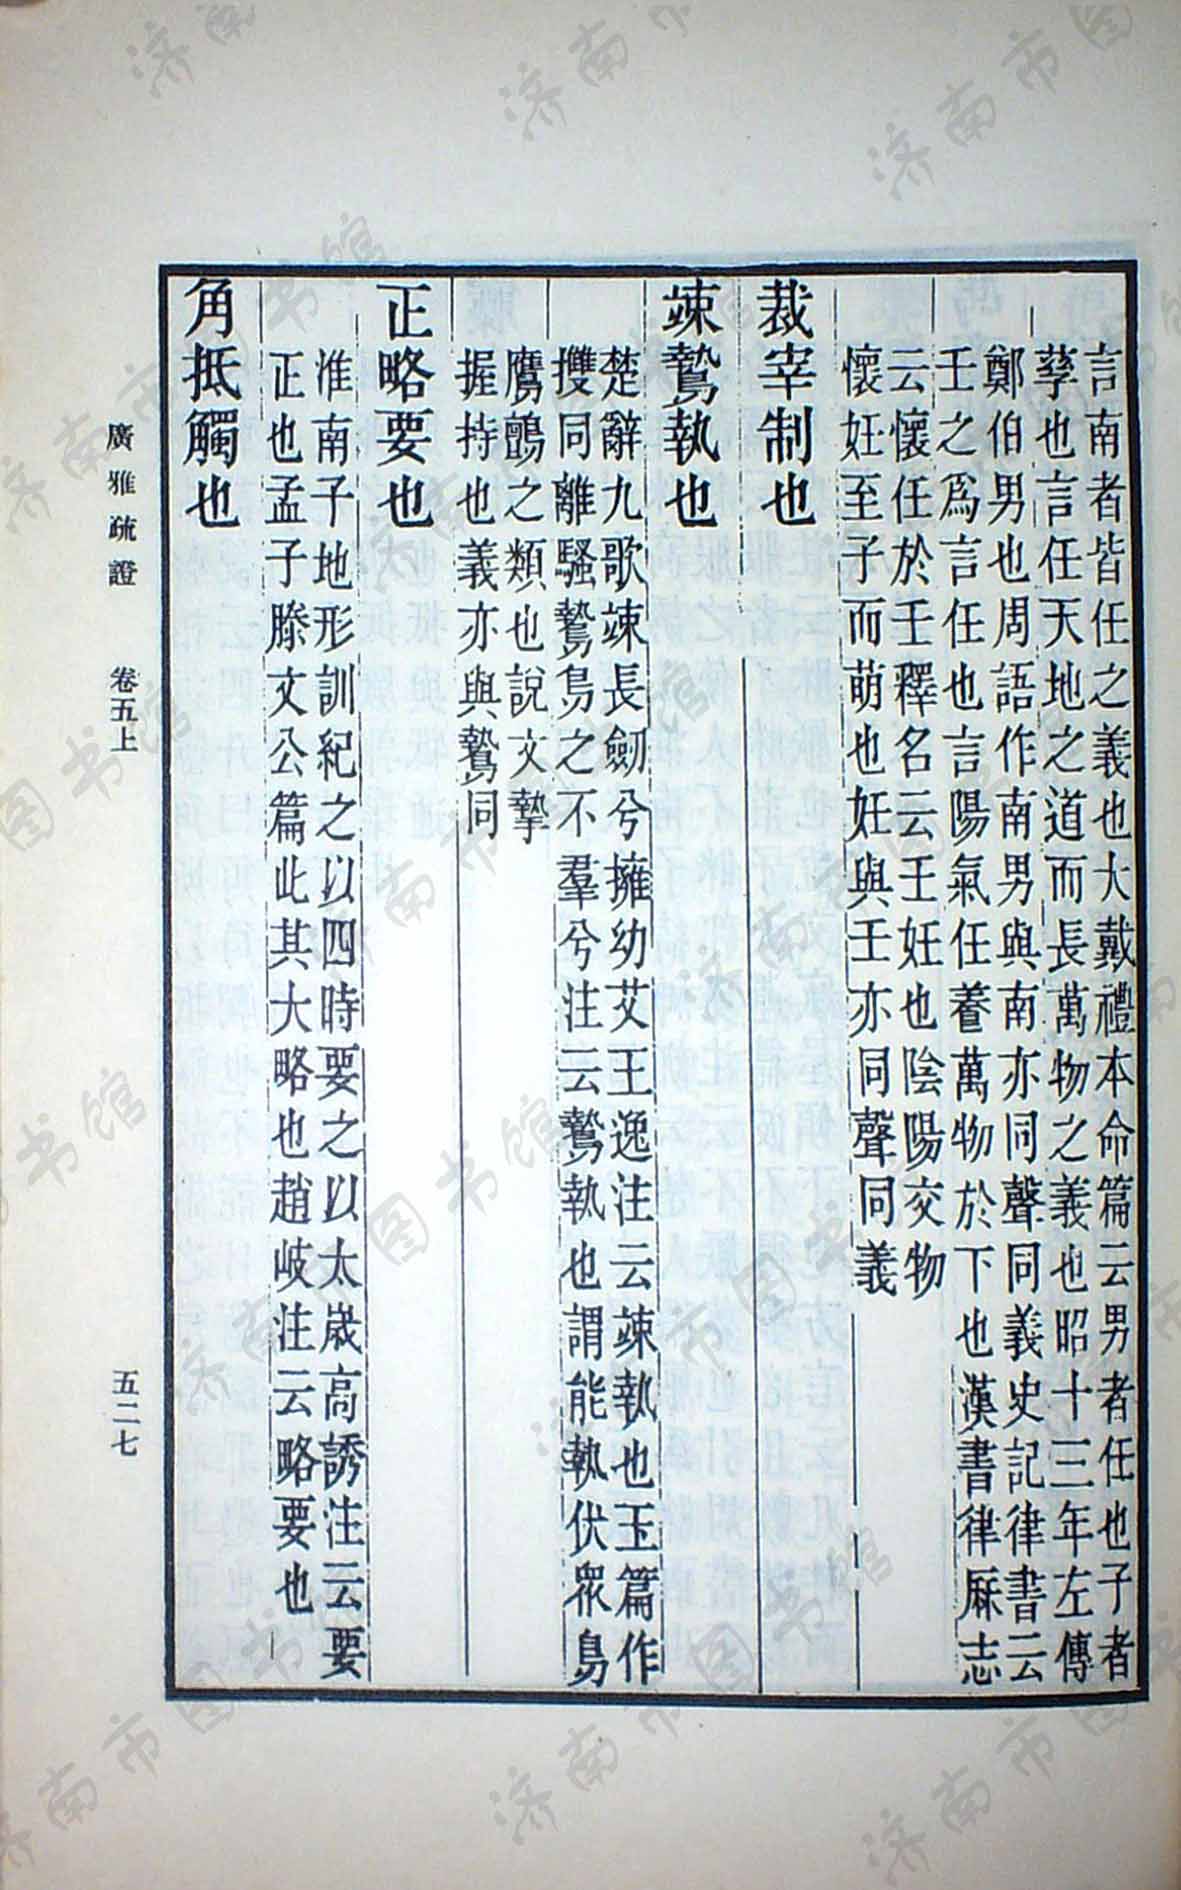 言南者皆任之義也大戴禮本命篇云男者任也子者
孳也言任天地之道而長萬物之義也昭十三年左傳
鄭伯男也周語作南男與南亦同聲同義史記律書云
壬之爲言任也言陽氣任養萬物於下也漢書律厤志
云懷任於壬釋名云壬妊也陰陽交物
懷妊至子而萌也妊與壬亦同聲同義
裁宰制也
竦鷙執也
楚辭九歌竦長劒兮擁幼艾王逸注云竦執也玉篇作
㩳同離騷鷙鳥之不羣兮注云鷙執也謂能執伏衆鳥
鷹鸇之類也說文摯
握持也義亦與鷙同
正略要也
淮南子地形訓紀之以四時要之以太歲高誘注云要
正也孟子滕文公篇此其大略也趙岐注云略要也
角抵觸也
廣雅疏證 卷五上 五二七
济南市图书馆